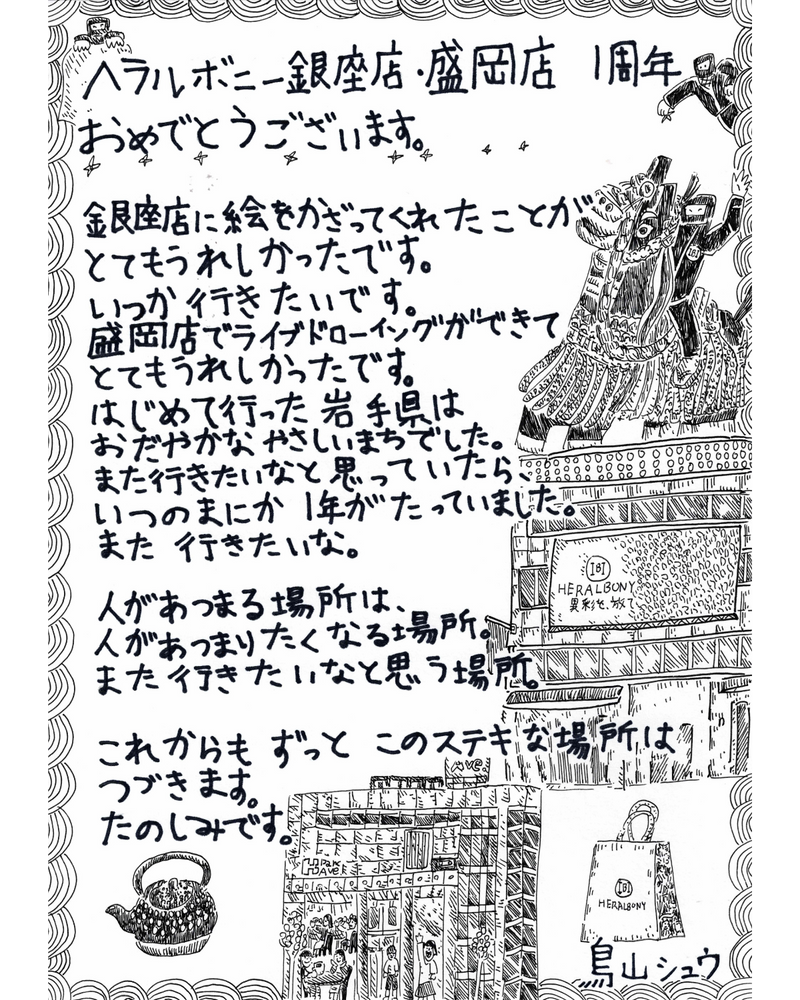 ヘラルボニー銀座店・盛岡店 1周年
おめでとうございます。
銀座店に絵をかざってくれたことが
とてもうれしかったです。
いつか行きたいです。
盛岡店でライブドローイングができて
とてもうれしかったです。
はじめて行った岩手県は
おだやかなやさしいまちでした。
また行きたいなと思っていたら、
いつのまにか 1年がたっていました。
また 行きたいな。
人があつまる場所は、
人があつまりたくなる場所。
また行きたいなと思う場所。
これからも ずっと このステキな場所は
つづきます。
たのしみです。
HERALBONY
異彩を、放て
AVE
PARK
AVE
HERALBONY
鳥山シュウ